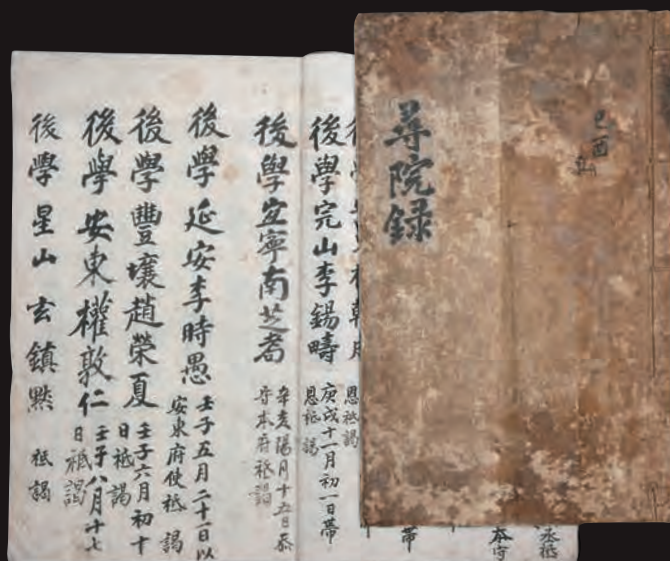 己酉
尋院録
恩祗謁
後學完山李錫疇
庚戌十一月初一日帶
恩祗謁
後學宜寧南芝耉
辛亥陽月十五日忝
守本府祗謁
後學延安李時愚
壬子五月二十一日以
安東府使祗謁
後學豐壤趙榮夏
壬子六月初十
日祗謁
後學安東權敦仁
壬子八月十七
日祗謁
後學星山玄鎮黙 祗謁